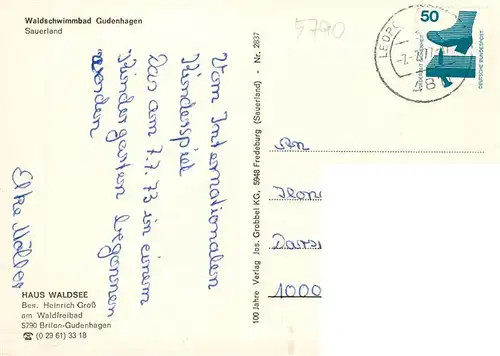 Waldschwimmbad Gudenhagen
Sauerland
5790
50
DEUTSCHE BUNDESPOST
Vom Internationalen
Kinderspiel
Das am 7.7.73 in einem
Kindergarten begonnen
werden
Elke Möller
HAUS WALDSEE
Bes. Heinrich Groß
am Waldfreibad
5790 Brilon-Gudenhagen
☎ (0 29 61) 33 18
100 Jahre Verlag Jos. Grobbel KG, 5948 Fredeburg (Sauerland) - Nr. 2837
An
1000